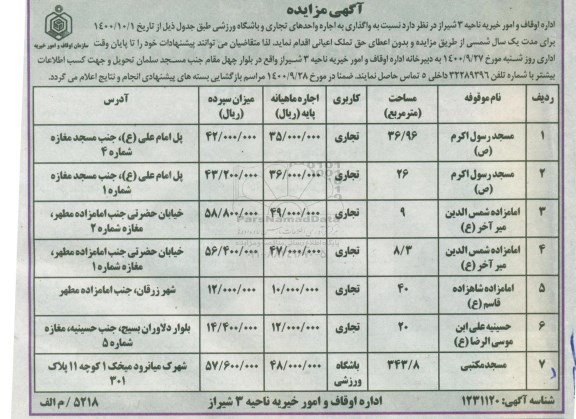 آگهی مزایده
سازمان اوقاف و امور خیریه
اداره اوقاف و امور خیریه ناحیه ۳ شیراز در نظر دارد نسبت به واگذاری به اجاره واحدهای تجاری و باشگاه ورزشی طبق جدول ذیل از تاریخ ۱۴۰۰/۱۰/۱
برای مدت یک سال شمسی از طریق مزایده و بدون اعطای حق تملک اعیانی اقدام نماید. لذا متقاضیان می توانند پیشنهادات خود را تا پایان وقت
اداری روز شنبه مورخ ۱۴۰۰/۹/۲۷ به دبیرخانه اداره اوقاف و امور خیریه ناحیه ۳ شیراز واقع در بلوار چهل مقام جنب مسجد سلمان تحویل و جهت کسب اطلاعات
بیشتر با شماره تلفن ۳۲۲۸۹۳۹۶ داخلی ۵ تماس حاصل نمایند. ضمنا در مورخ ۱۴۰۰/۹/۲۸ مراسم بازگشایی بسته های پیشنهادی انجام و نتایج اعلام می گردد.
ردیف نام موقوفه مساحت (مترمربع) کاربری اجاره ماهیانه پایه (ریال) میزان سپرده (ریال) آدرس
۱ مسجد رسول اکرم (ص) ۳۶/۹۶ تجاری ۳۵/۰۰۰/۰۰۰ ۴۲/۰۰۰/۰۰۰ پل امام علی (ع)، جنب مسجد مغازه شماره ۴
۲ مسجد رسول اکرم (ص) ۲۶ تجاری ۳۶/۰۰۰/۰۰۰ ۴۳/۲۰۰/۰۰۰ پل امام علی (ع)، جنب مسجد مغازه شماره ۱
۳ امامزاده شمس الدین میر آخر (ع) ۹ تجاری ۴۹/۰۰۰/۰۰۰ ۵۸/۸۰۰/۰۰۰ خیابان حضرتی جنب امامزاده مطهر، مغازه شماره ۲
۴ امامزاده شمس الدین میر آخر (ع) ۸/۳ تجاری ۴۷/۰۰۰/۰۰۰ ۵۶/۴۰۰/۰۰۰ خیابان حضرتی جنب امامزاده مطهر، مغازه شماره ۱
۵ امامزاده شاهزاده قاسم (ع) ۴۰ تجاری ۱۰/۰۰۰/۰۰۰ ۱۲/۰۰۰/۰۰۰ شهر زرقان، جنب امامزاده مطهر
۶ حسینیه علی ابن موسی الرضا (ع) ۲۰ تجاری ۱۲/۰۰۰/۰۰۰ ۱۴/۴۰۰/۰۰۰ بلوار دلاوران بسیج، جنب حسینیه، مغازه شماره ۵
۷ مسجد مکتبی ۳۴۳/۸ باشگاه ورزشی ۴۸/۰۰۰/۰۰۰ ۵۷/۶۰۰/۰۰۰ شهرک میانرود میخک ۱ کوچه ۱۱ پلاک ۳۰۱
شناسه آگهی: ۱۲۳۱۱۲۰ اداره اوقاف و امور خیریه ناحیه ۳ شیراز ۵۲۱۸ / م الف